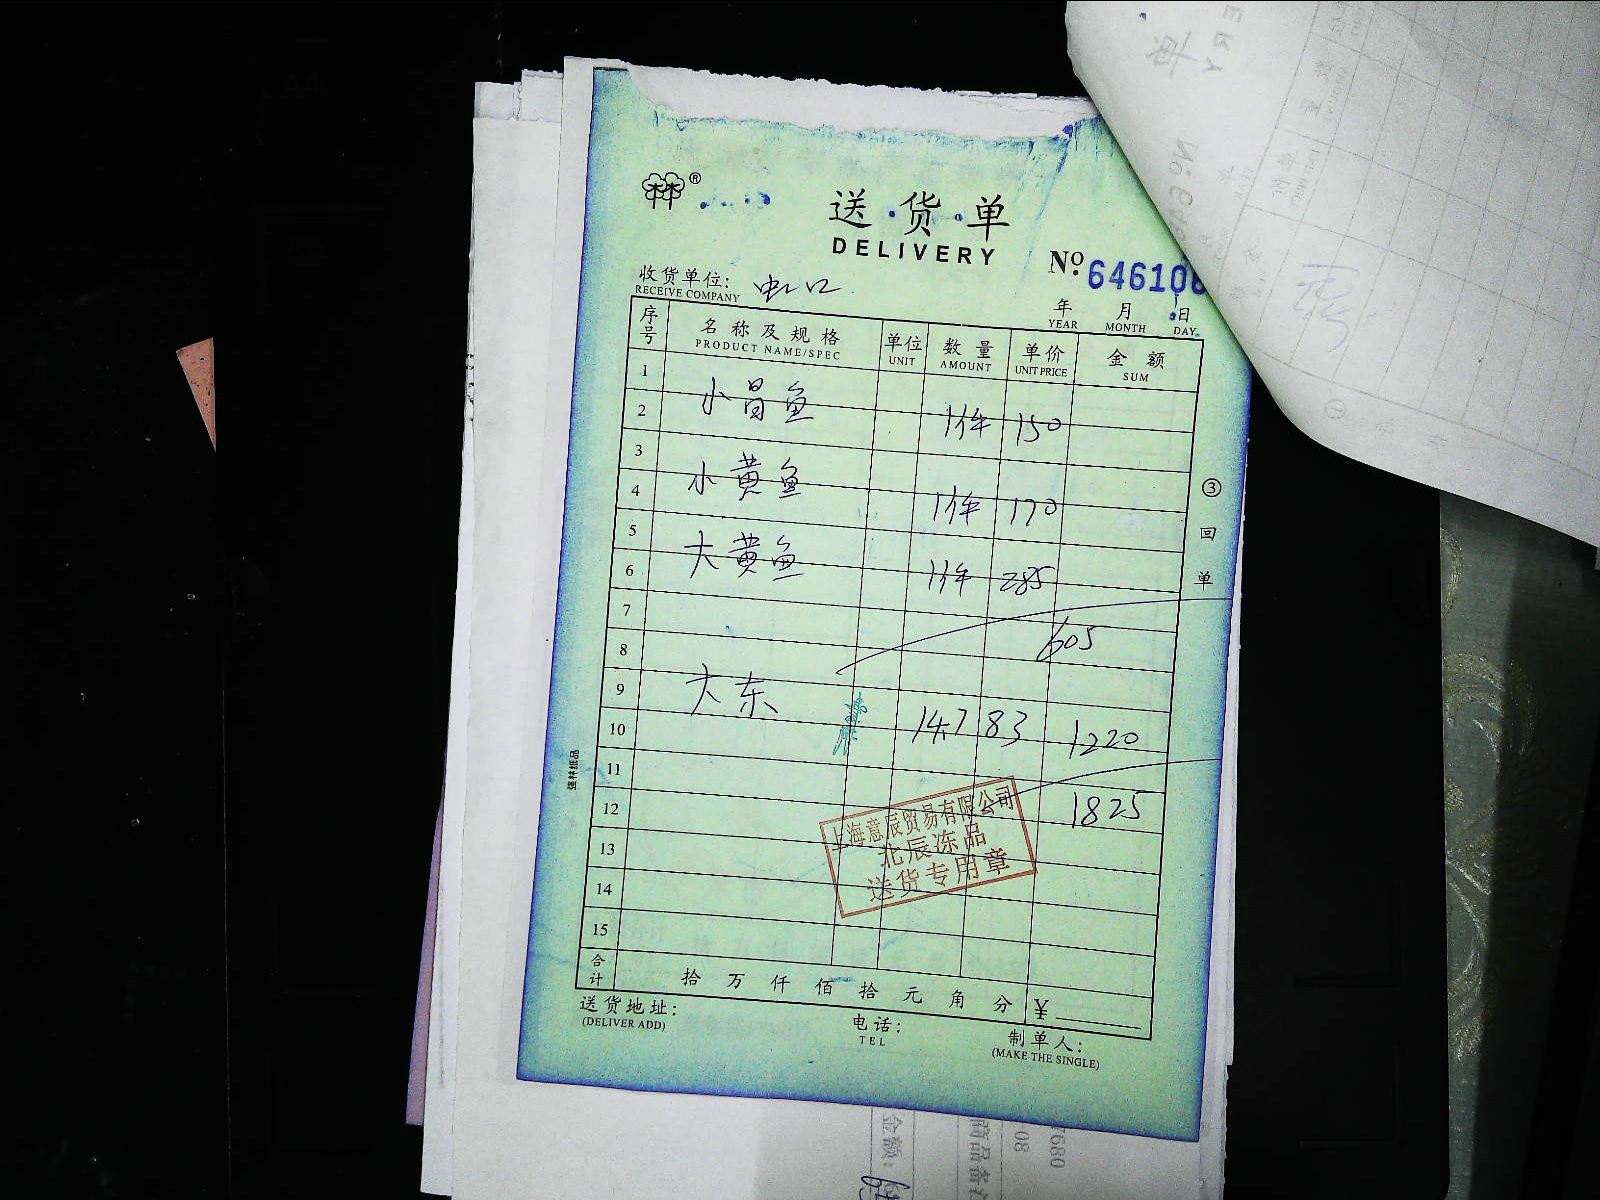 ®
送·货·单
DELIVERY
No.646106
收货单位: 虹口
RECEIVE COMPANY
年 月 日
YEAR MONTH DAY
序号 名称及规格 单位 数量 单价 金额
PRODUCT NAME/SPEC UNIT AMOUNT UNIT PRICE SUM
1
2 小昌鱼 1件 150
3
4 小黄鱼 1件 170
5
6 大黄鱼 1件 285
7
8 605
9 大东
10 14.7 83 1220
11
12 1825
13
14
15
上海意辰贸易有限公司
北辰冻品
送货专用章
合计 拾 万 仟 佰 拾 元 角 分 ¥
送货地址:
(DELIVER ADD)
电话:
TEL
制单人:
(MAKE THE SINGLE)
③回单
强林纸品
金额:
商品备
08
7680